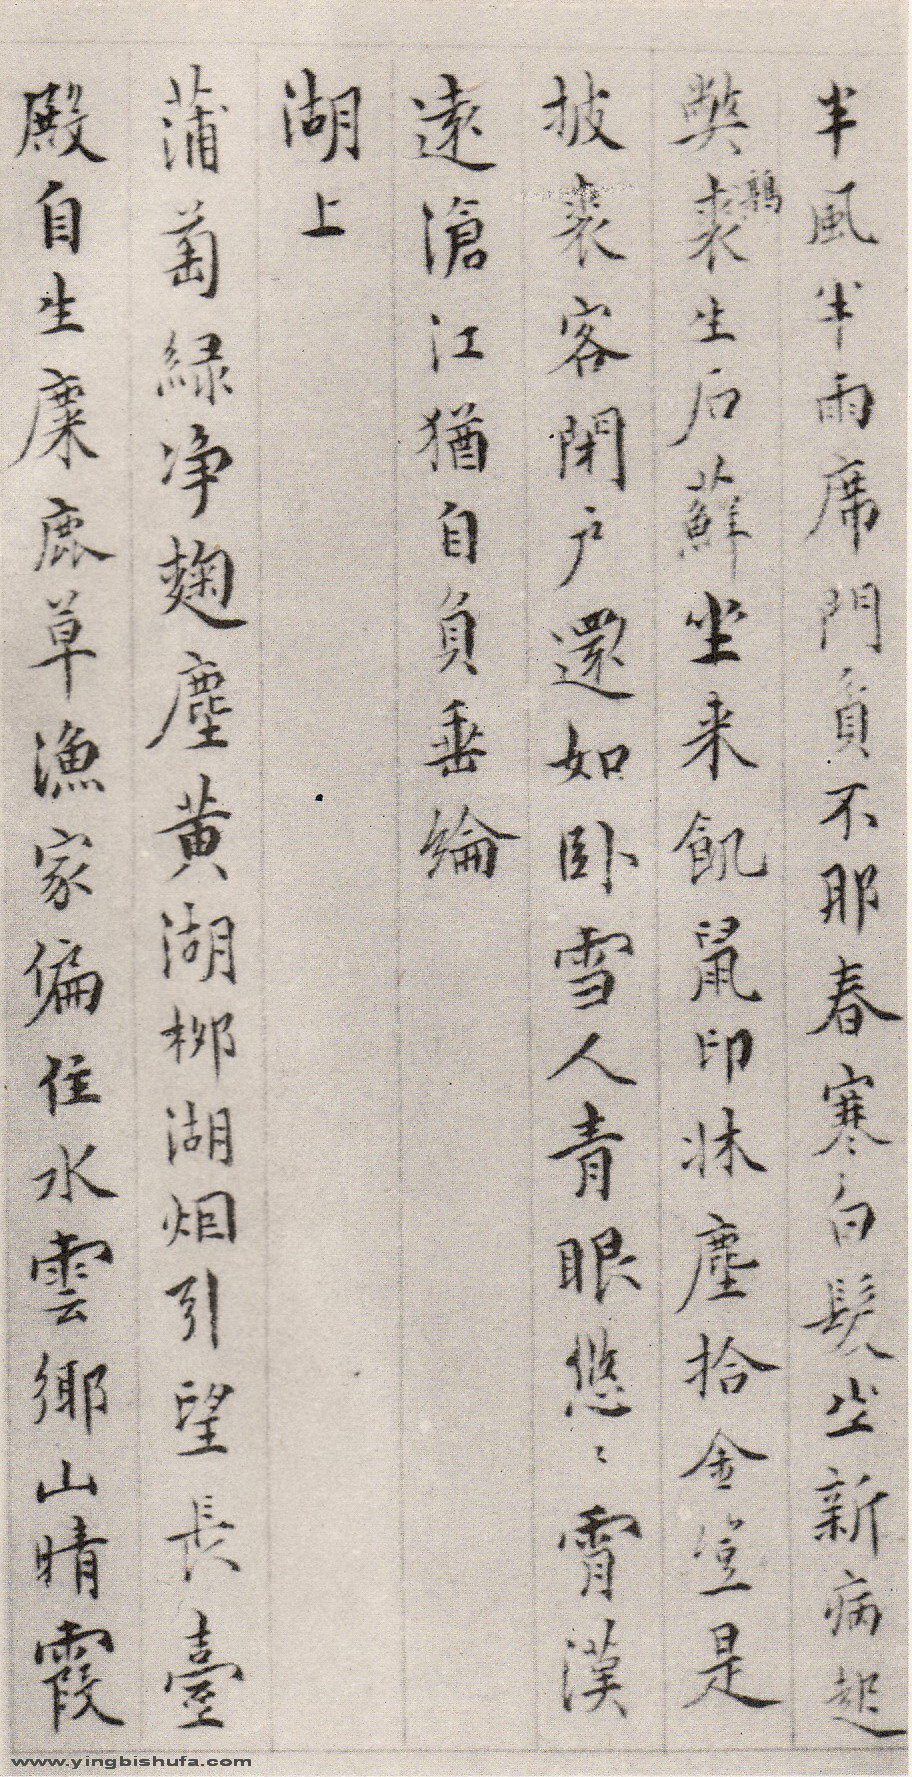 半風半雨席門負不那春寒白髮坐新病起
獘裘鶉生后蘇坐来飢鼠印牀塵拾金豈是
披裘客閉户還如卧雪人青眼悠〻霄漢
遠滄江猶自負垂綸
湖上
蒲萄緑净麴塵黄湖柳湖烟引望長臺
殿自生麋鹿草漁家偏住水雲鄉山晴霞
www.yingbishufa.com